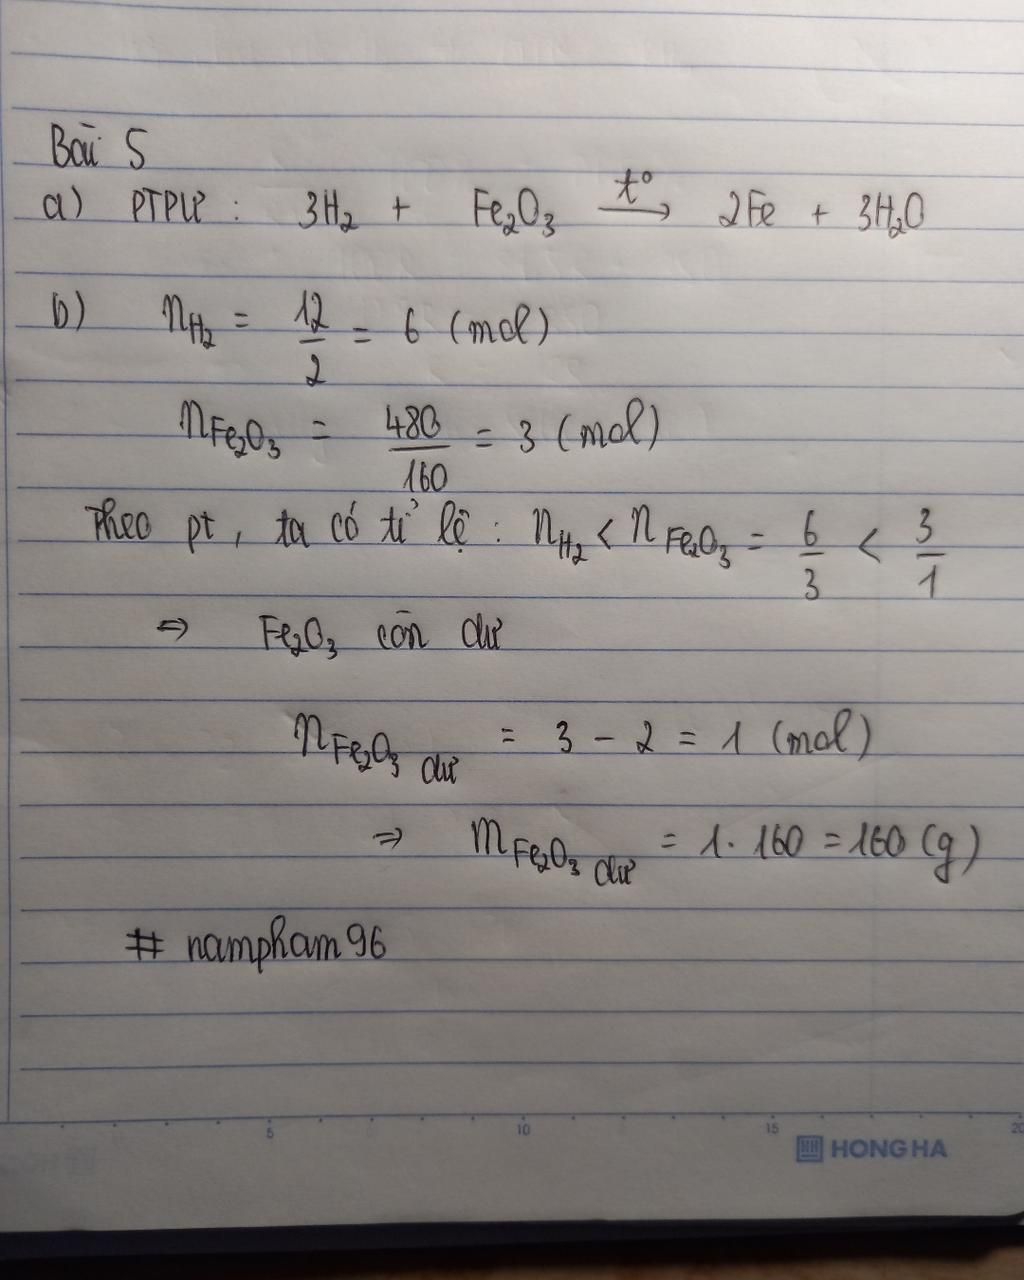 Bài 5
a) PTPƯ : 3H₂ + Fe₂O₃ t° → 2Fe + 3H₂O
b) nH₂ = 12/2 = 6 (mol)
nFe₂O₃ = 480/160 = 3 (mol)
Theo pt, ta có tỉ lệ : nH₂ < nFe₂O₃ = 6/3 < 3/1
⇒ Fe₂O₃ còn dư
nFe₂O₃ dư = 3 - 2 = 1 (mol)
⇒ mFe₂O₃ dư = 1. 160 = 160 (g)
# nampham96
5 10 15 20
HH HONG HA